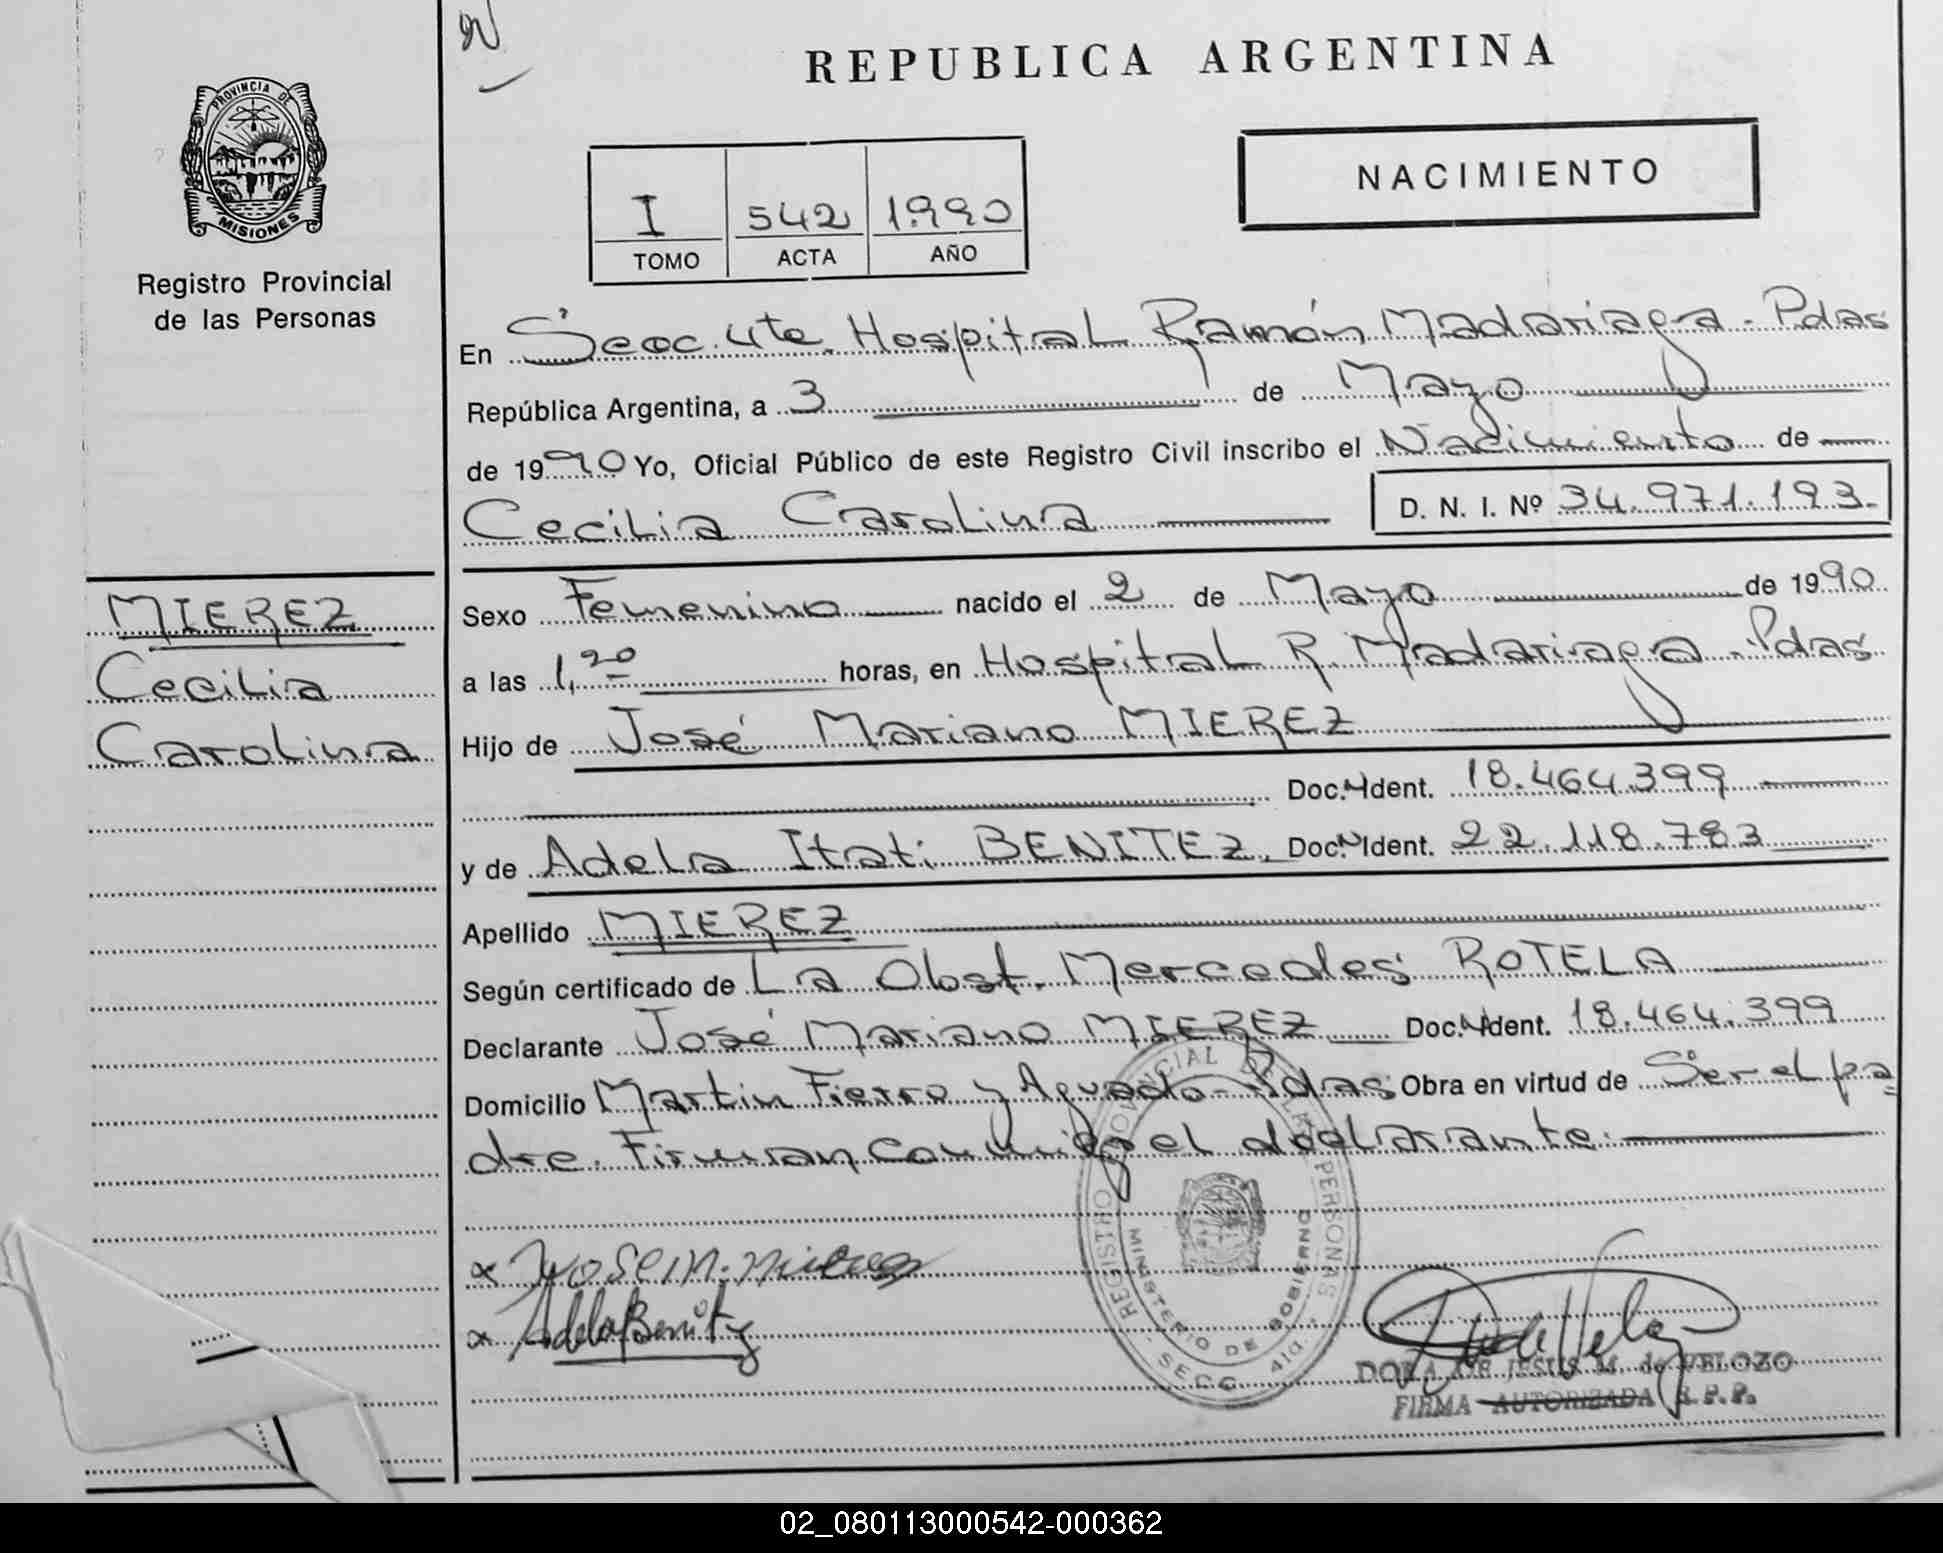 REPUBLICA ARGENTINA
PROVINCIA DE
MISIONES
Registro Provincial
de las Personas
I 542 1.990
TOMO ACTA AÑO
NACIMIENTO
En Secc. 4ta. Hospital Ramón Madariaga - Pdas
República Argentina, a 3 de Mayo
de 1990 Yo, Oficial Público de este Registro Civil inscribo el Nacimiento de
Cecilia Carolina D. N. I. Nº 34.971.193.
MIEREZ
Cecilia
Carolina
Sexo Femenino nacido el 2 de Mayo de 1990
a las 1,20 horas, en Hospital R. Madariaga - Pdas
Hijo de José Mariano MIEREZ
Doc. Ident. 18.464.399
y de Adela Itatí BENITEZ, Doc. Ident. 22.118.783
Apellido MIEREZ
Según certificado de La Obst. Mercedes ROTELA
Declarante José Mariano MIEREZ Doc. Ident. 18.464.399
Domicilio Martin Fierro y Aguado - Pdas Obra en virtud de Ser el pa=
dre. Firman conmigo el declarante.
x Jose M. Mierez
x Adela Benitez
REGISTRO PROVINCIAL DE LAS PERSONAS
MINISTERIO DE GOBIERNO
SECC. 4ta.
DORA DE JESUS M. de VELOZO
FIRMA AUTORIZADA R.P.P.
02_080113000542-000362